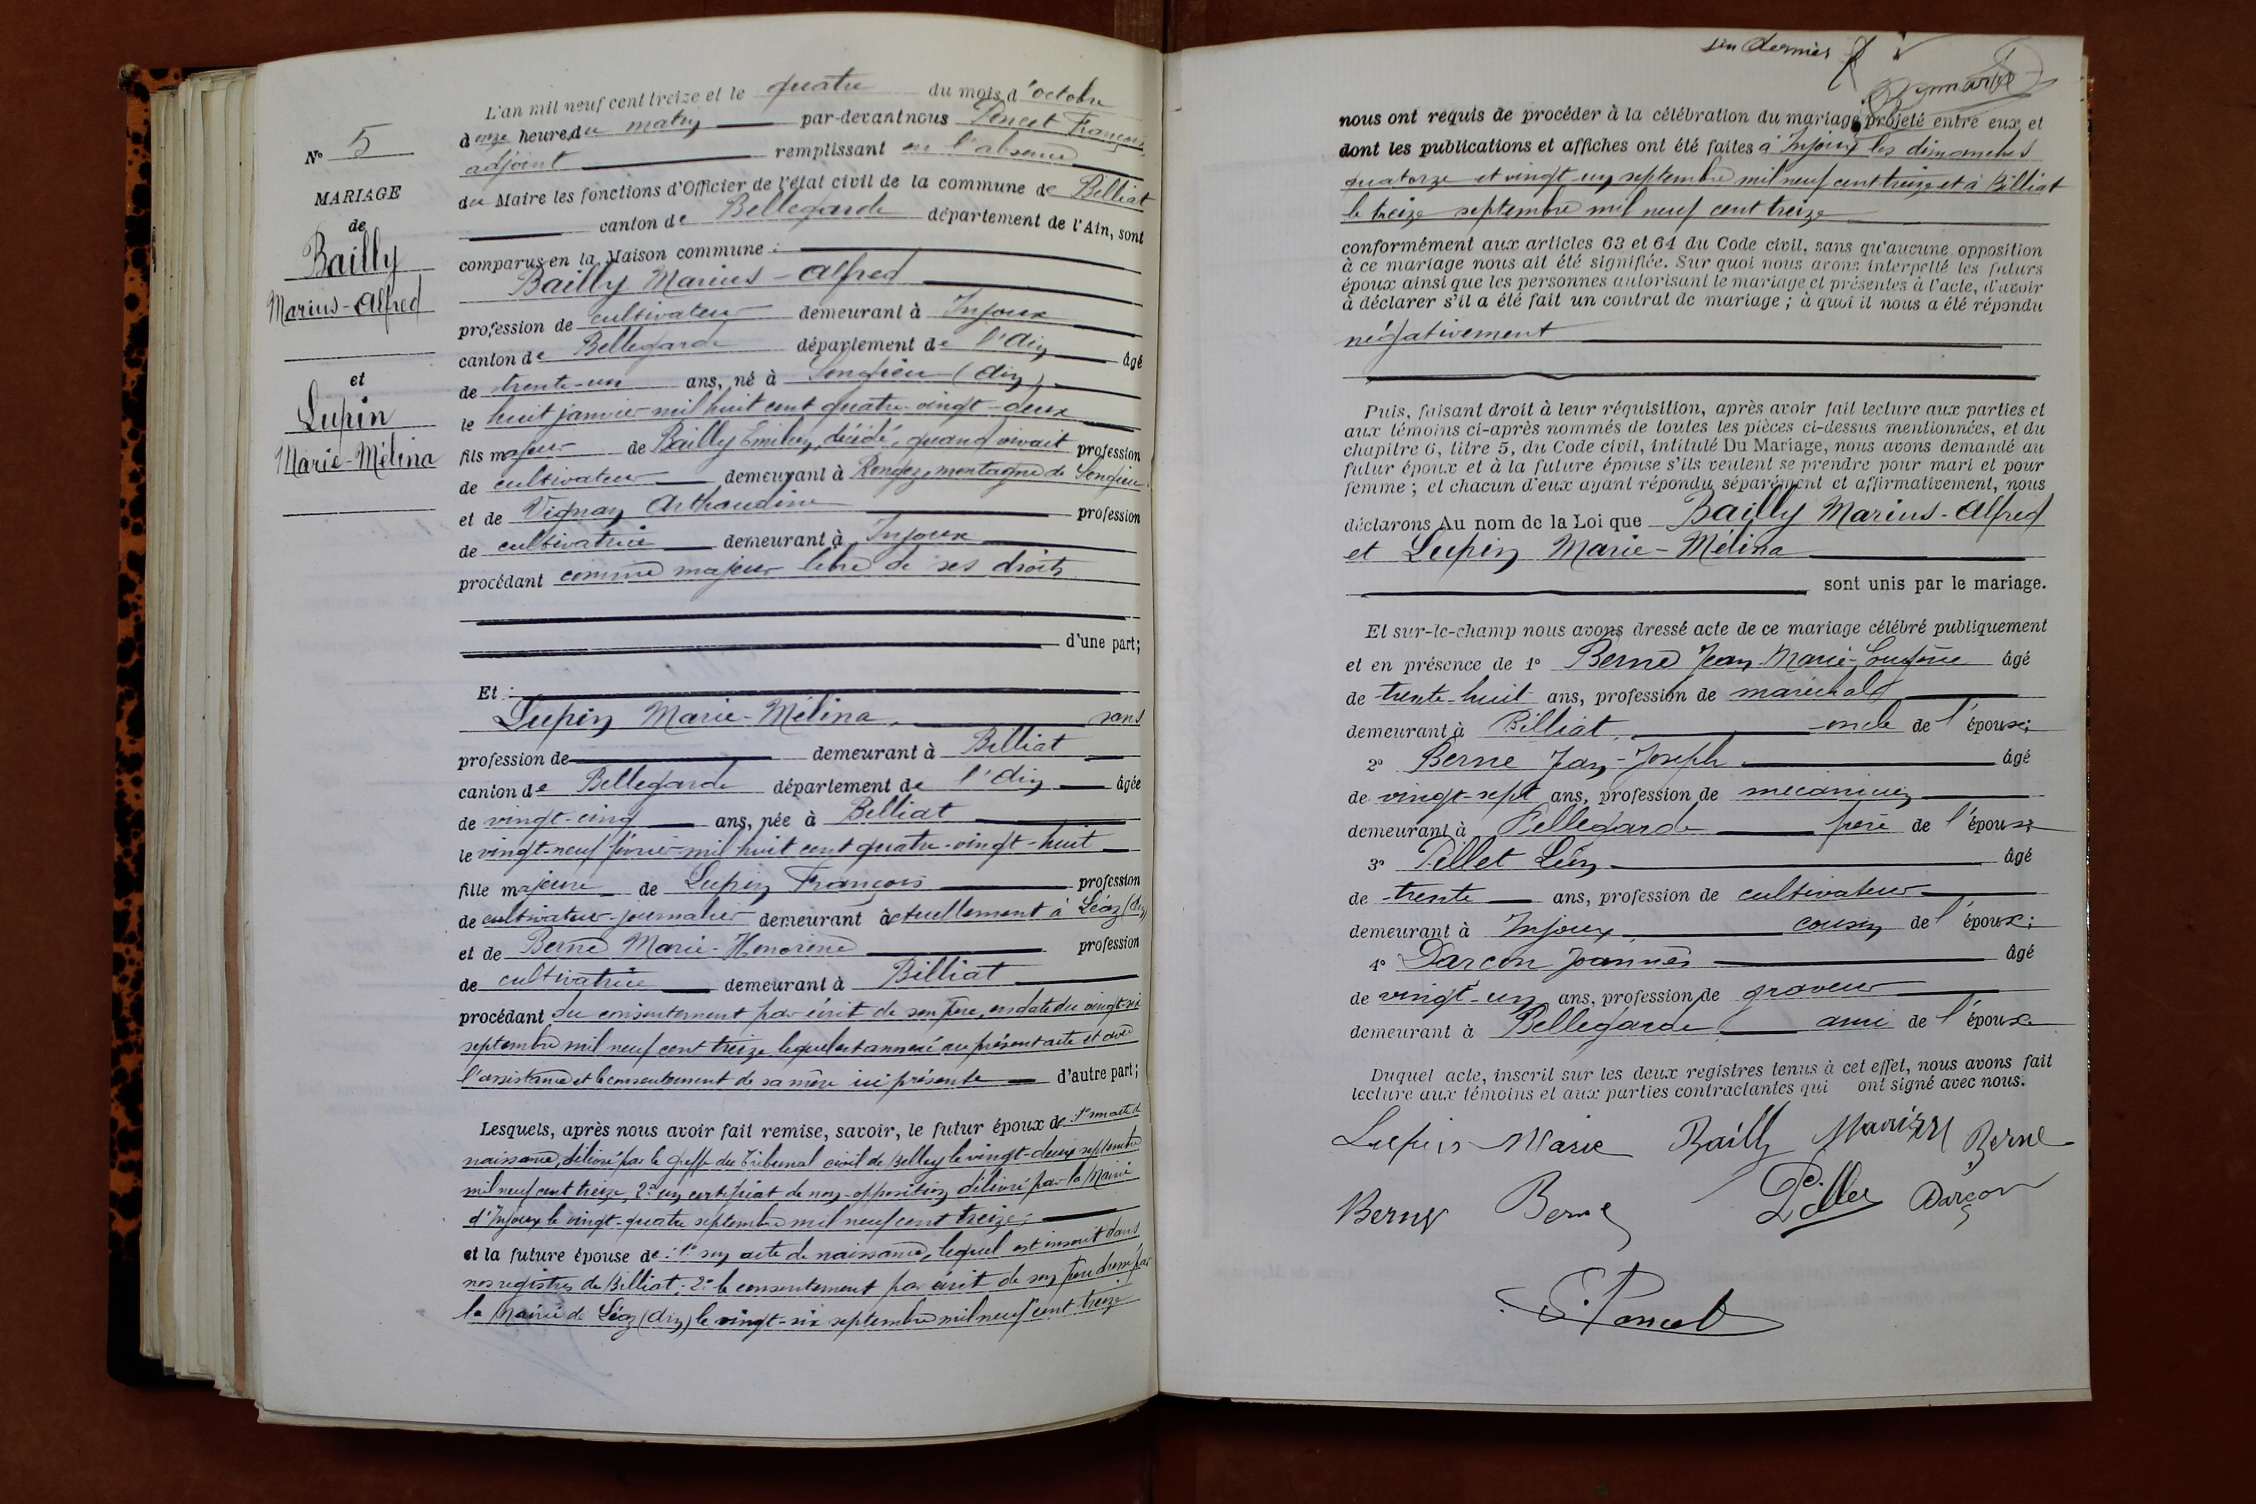 L'an mil neuf cent treize et le quatre du mois d'octobre
à onze heures du matin par-devant nous Poncet François,
adjoint remplissant en l'absence
du Maire les fonctions d'Officier de l'état civil de la commune de Billiat
canton de Bellegarde département de l'Ain, sont
comparus en la Maison commune :
Bailly Marius-Alfred
profession de cultivateur demeurant à Injoux
canton de Bellegarde département de l'Ain âgé
de trente-un ans, né à Songieu (Ain)
le huit janvier mil huit cent quatre-vingt-deux
fils majeur de Bailly Emilien, décédé, quand vivait profession
de cultivateur demeurant à montagne de Songieu
et de Vignay profession
de cultivatrice demeurant à Injoux
procédant comme majeur libre de ses droits
d'une part;
Et :
Lupin Marie-Mélina sans
profession de demeurant à Billiat
canton de Bellegarde département de l'Ain âgée
de vingt-cinq ans, née à Billiat
le vingt-neuf février mil huit cent quatre-vingt-huit
fille majeure de Lupin François profession
de cultivateur-journalier demeurant actuellement à Léaz (Ain)
et de Berne Marie-Honorine profession
de cultivatrice demeurant à Billiat
procédant du consentement par écrit de son père, en date du vingt-six
septembre mil neuf cent treize lequel est annexé au présent acte et avec
l'assistance et le consentement de sa mère ici présente d'autre part;
Lesquels, après nous avoir fait remise, savoir, le futur époux de : 1° son acte de
naissance, délivré par le greffe du Tribunal civil de Belley le vingt-deux septembre
mil neuf cent treize, 2° un certificat de non-opposition délivré par la Mairie
d'Injoux le vingt-quatre septembre mil neuf cent treize;
et la future épouse de : 1° son acte de naissance, lequel est inscrit dans
nos registres de Billiat; 2° le consentement par écrit de son père dressé par
la Mairie de Léaz (Ain) le vingt-six septembre mil neuf cent treize
N° 5
MARIAGE
de
Bailly
Marius-Alfred
et
Lupin
Marie-Mélina
dernier
nous ont requis de procéder à la célébration du mariage projeté entre eux et
dont les publications et affiches ont été faites à Injoux les dimanches
quatorze et vingt-un septembre mil neuf cent treize et à Billiat
le treize septembre mil neuf cent treize
conformément aux articles 63 et 64 du Code civil, sans qu'aucune opposition
à ce mariage nous ait été signifiée. Sur quoi nous avons interpellé les futurs
époux ainsi que les personnes autorisant le mariage et présentes à l'acte, d'avoir
à déclarer s'il a été fait un contrat de mariage ; à quoi il nous a été répondu
négativement
Puis, faisant droit à leur réquisition, après avoir fait lecture aux parties et
aux témoins ci-après nommés de toutes les pièces ci-dessus mentionnées, et du
chapitre 6, titre 5, du Code civil, intitulé Du Mariage, nous avons demandé au
futur époux et à la future épouse s'ils veulent se prendre pour mari et pour
femme ; et chacun d'eux ayant répondu séparément et affirmativement, nous
déclarons Au nom de la Loi que Bailly Marius-Alfred
et Lupin Marie-Mélina
sont unis par le mariage.
Et sur-le-champ nous avons dressé acte de ce mariage célébré publiquement
et en présence de 1° Berne Jean-Marie- âgé
de trente-huit ans, profession de maréchal
demeurant à Billiat, oncle de l'épouse;
2° Berne Jean-Joseph âgé
de vingt-sept ans, profession de mécanicien
demeurant à Bellegarde de l'épouse
3° Pillet Léon âgé
de trente ans, profession de cultivateur
demeurant à Injoux, cousin de l'époux;
4° Darcon Joannès âgé
de vingt-un ans, profession de graveur
demeurant à Bellegarde ami de l'épouse
Duquel acte, inscrit sur les deux registres tenus à cet effet, nous avons fait
lecture aux témoins et aux parties contractantes qui ont signé avec nous.
Lupin Marie Bailly Marius Berne
Berne Berne Pillet Darcon
Poncet